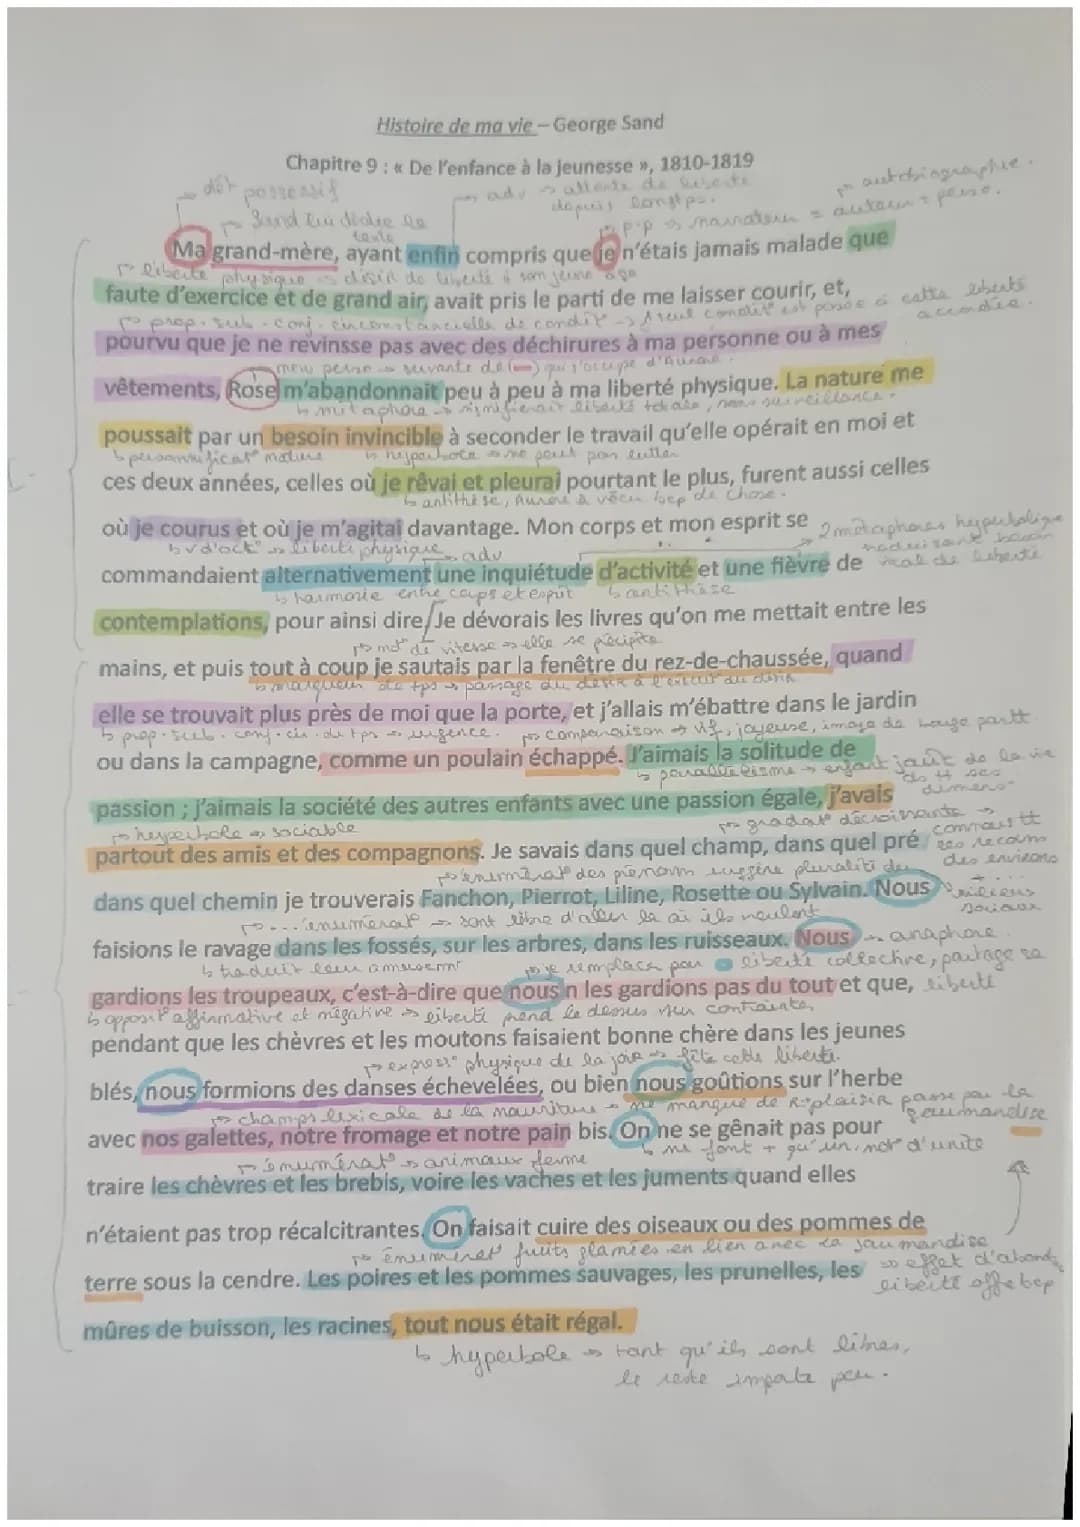 Histoire de ma vie – George Sand
Chapitre 9 : « De l'enfance à la jeunesse », 1810-1819
dét possessif
adv → attente de liberté
depuis longtps.
autobiographie.
Sand lui dédie le
texte
p.p → narrateur = auteur = perso.
Ma grand-mère, ayant enfin compris que je n'étais jamais malade que
liberté physique → désir de liberté à son jeune age
faute d'exercice et de grand air, avait pris le parti de me laisser courir, et,
prop. sub. conj. circonstancielle de condit° → seul condit° est posée à cette liberté
accordée.
pourvu que je ne revinsse pas avec des déchirures à ma personne ou à mes
new perso → suivante de qui s'occupe d'Aurore.
vêtements, Rose m'abandonnait peu à peu à ma liberté physique. La nature me
métaphore → signifierait liberté totale, sans surveillance.
poussait par un besoin invincible à seconder le travail qu'elle opérait en moi et
personnificat° nature
hyperbole → ne peut pas lutter
ces deux années, celles où je rêvai et pleurai pourtant le plus, furent aussi celles
antithèse, Aurore a vécu bcp de chose.
où je courus et où je m'agitai davantage. Mon corps et mon esprit se
v d'act° → liberté physique
adv
2 métaphores hyperbolique
traduisant besoin
vital de liberté
commandaient alternativement une inquiétude d'activité et une fièvre de
harmonie entre corps et esprit
antithèse
contemplations, pour ainsi dire/Je dévorais les livres qu'on me mettait entre les
mot de vitesse → elle se précipite
mains, et puis tout à coup je sautais par la fenêtre du rez-de-chaussée, quand
marqueur de tps → passage du désir à l'excut du désir
elle se trouvait plus près de moi que la porte, et j'allais m'ébattre dans le jardin
prop. sub. conj. cir. du tps → urgence.
comparaison → vif, joyeuse, image de bouge partt
ou dans la campagne, comme un poulain échappé. J'aimais la solitude de
parallélisme → enfant jouit de la vie
ds tt ses
dimens°
passion ; j'aimais la société des autres enfants avec une passion égale, j'avais
hyperbole → sociable
gradat° décroissante →
connaist tt
ses recoins
des environs
partout des amis et des compagnons. Je savais dans quel champ, dans quel pré
énumérat° des prénom suggère pluralité de
milieux
sociaux
dans quel chemin je trouverais Fanchon, Pierrot, Liline, Rosette ou Sylvain. Nous
... énumérat° → sont libre d'aller là où ils veulent
faisions le ravage dans les fossés, sur les arbres, dans les ruisseaux. Nous
anaphore
traduit leur amusemt
je remplacé par liberté collective, partage sa
liberté
gardions les troupeaux, c'est-à-dire que nous n les gardions pas du tout et que,
opposit° affirmative et négative → liberté prend le dessus sur contrainte
pendant que les chèvres et les moutons faisaient bonne chère dans les jeunes
express° physique de la joie → fête cette liberté.
blés, nous formions des danses échevelées, ou bien nous goûtions sur l'herbe
champs lexicale de la nourriture → ne manque de R. plaisir passe par la
gourmandise
avec nos galettes, nôtre fromage et notre pain bis. On ne se gênait pas pour
énumérat° → animaux ferme
ne font + qu'un, mot d'unité
traire les chèvres et les brebis, voire les vaches et les juments quand elles
n'étaient pas trop récalcitrantes. On faisait cuire des oiseaux ou des pommes de
énumérat° fruits glanées en lien avec la gourmandise
→ effet d'abond
liberté offre bcp
terre sous la cendre. Les poires et les pommes sauvages, les prunelles, les
mûres de buisson, les racines, tout nous était régal.
hyperbole → tant qu'ils sont libres,
le reste importe peu.